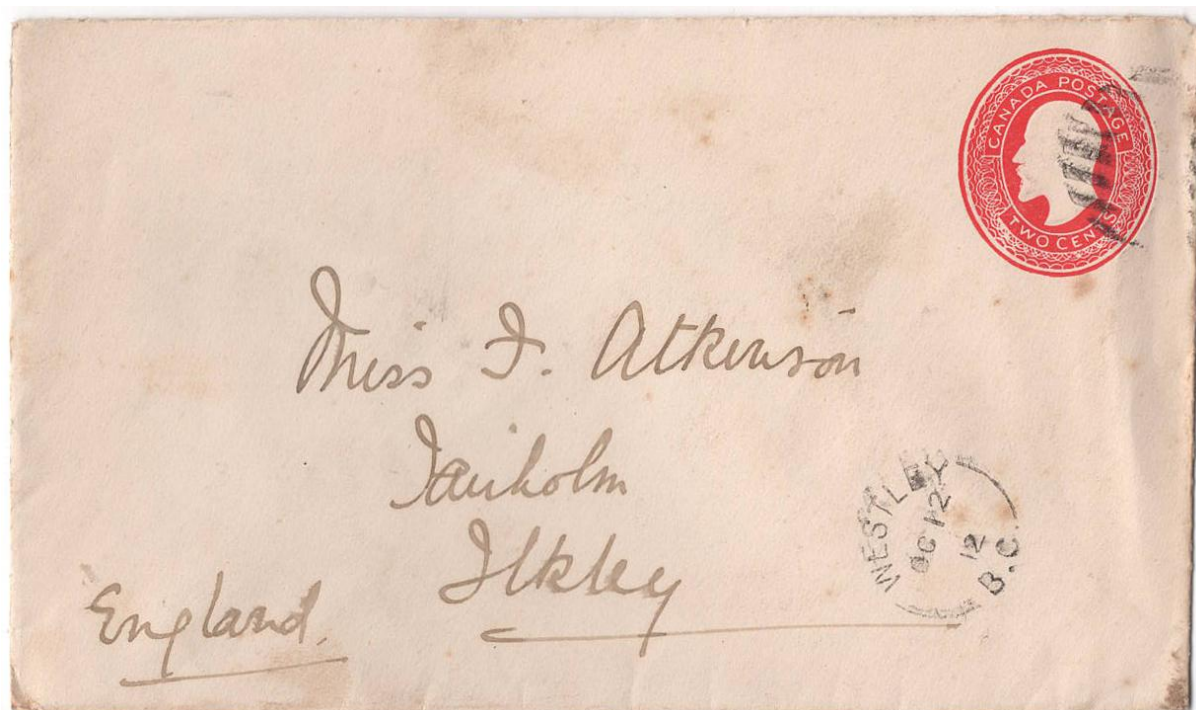 CANADA POSTAGE
TWO CENTS
Miss F. Atkinson
Fairholm
Ilkley
England.
WESTLEY
OC 12
12
B.C.